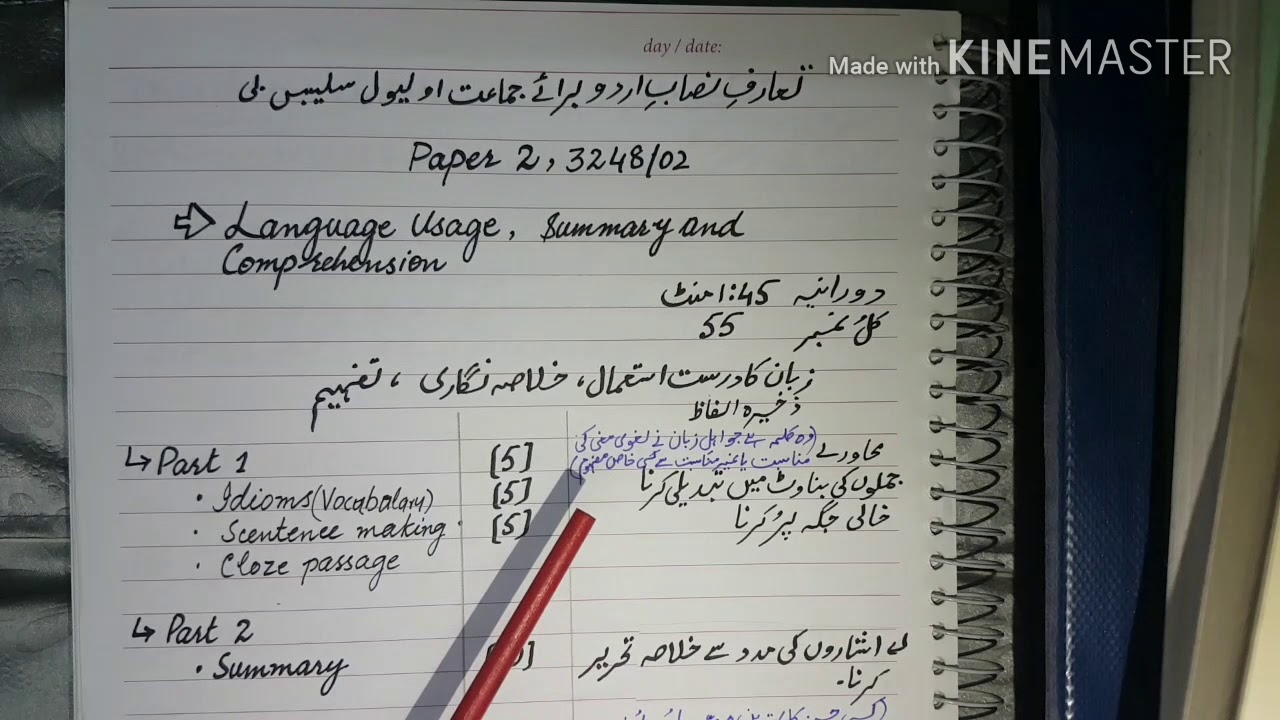 day / date:
Made with KINEMASTER
تعارفِ نصابِ اردو برائے جماعت او لیول سلیبس بی
Paper 2, 3248/02
⇨ Language Usage, Summary and
Comprehension
دورانیہ 1:45 منٹ
کل نمبر 55
زبان کا درست استعمال، خلاصہ نگاری، تفہیم
ذخیرہ الفاظ
↳ Part 1 [5] محاورے (وہ کلمہ ہے جو اہل زبان نے لغوی معنی کی
مناسبت یا غیر مناسبت سے کسی خاص مفہوم)
• Idioms (Vocabulary) [5] جملوں کی بناوٹ میں تبدیلی کرنا
• Scentence making [5] خالی جگہ پُر کرنا
• Cloze passage
↳ Part 2
• Summary اشاروں کی مدد سے خلاصہ تحریر
کرنا۔